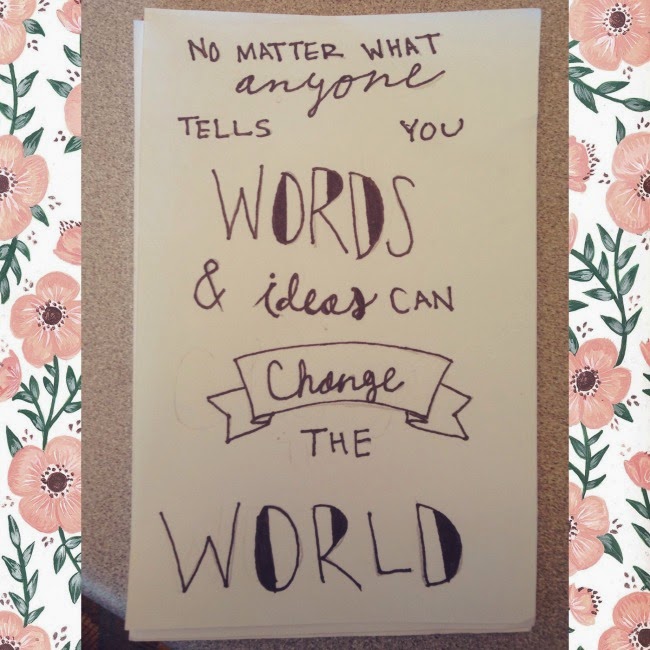 NO MATTER WHAT
anyone
TELLS YOU
WORDS
& ideas CAN
Change
THE
WORLD